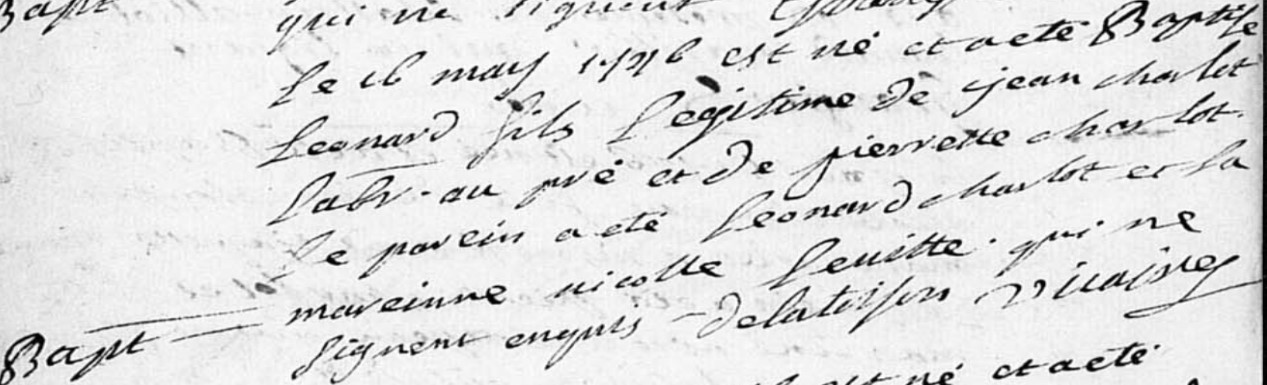 Bapt qui ne signent
Le 16 may 1776 est né et a eté Baptise
Leonard fils Legitime de jean charlot
labr. au pré et de pierrette charlot.
le parein a eté leonard charlot et la
mareinne nicolle qui ne
Bapt
signent enquis Delatison vicaire
est né et a eté